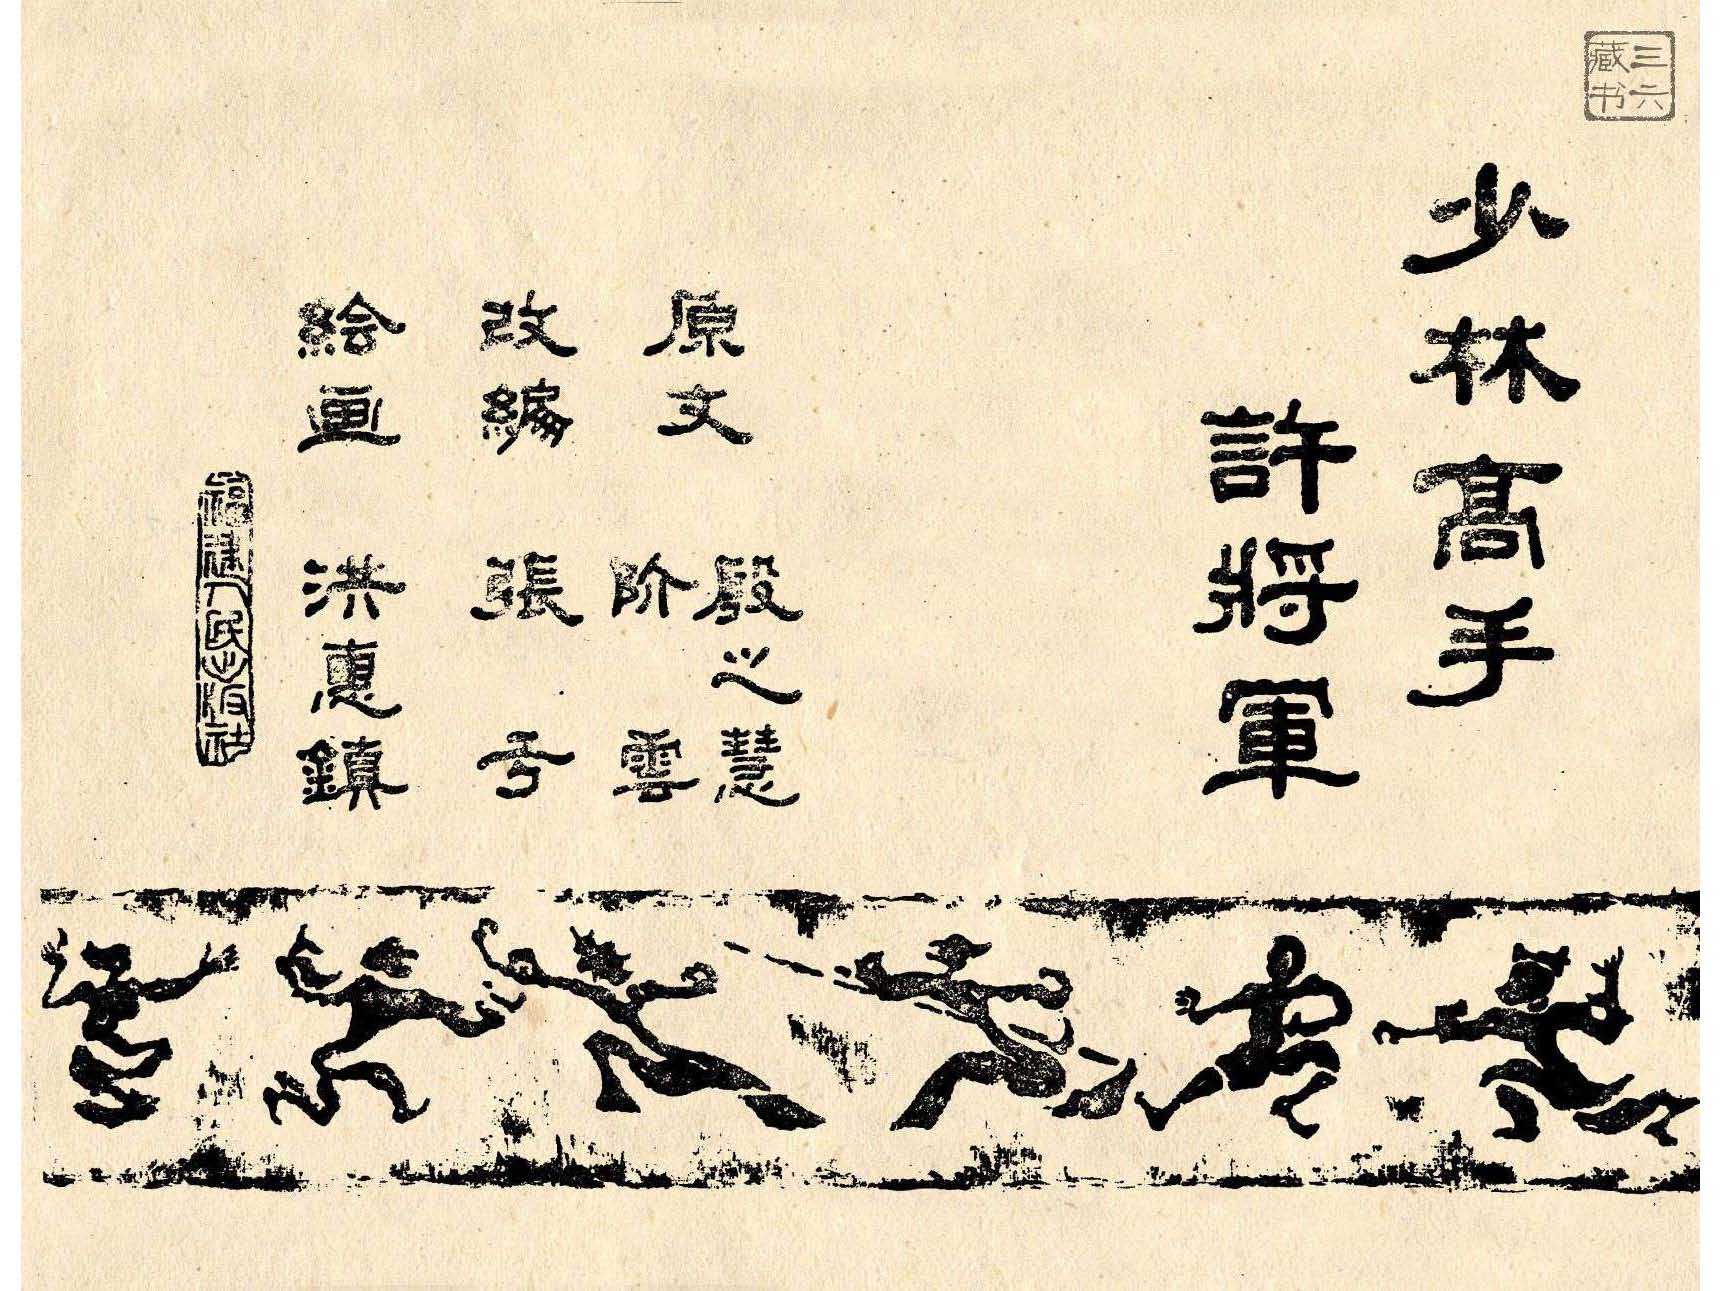 三六
藏书
少林高手
許將軍
原文 殷之慧
阶雲
改編 張兮
絵画 洪惠鎮
福建人民出版社